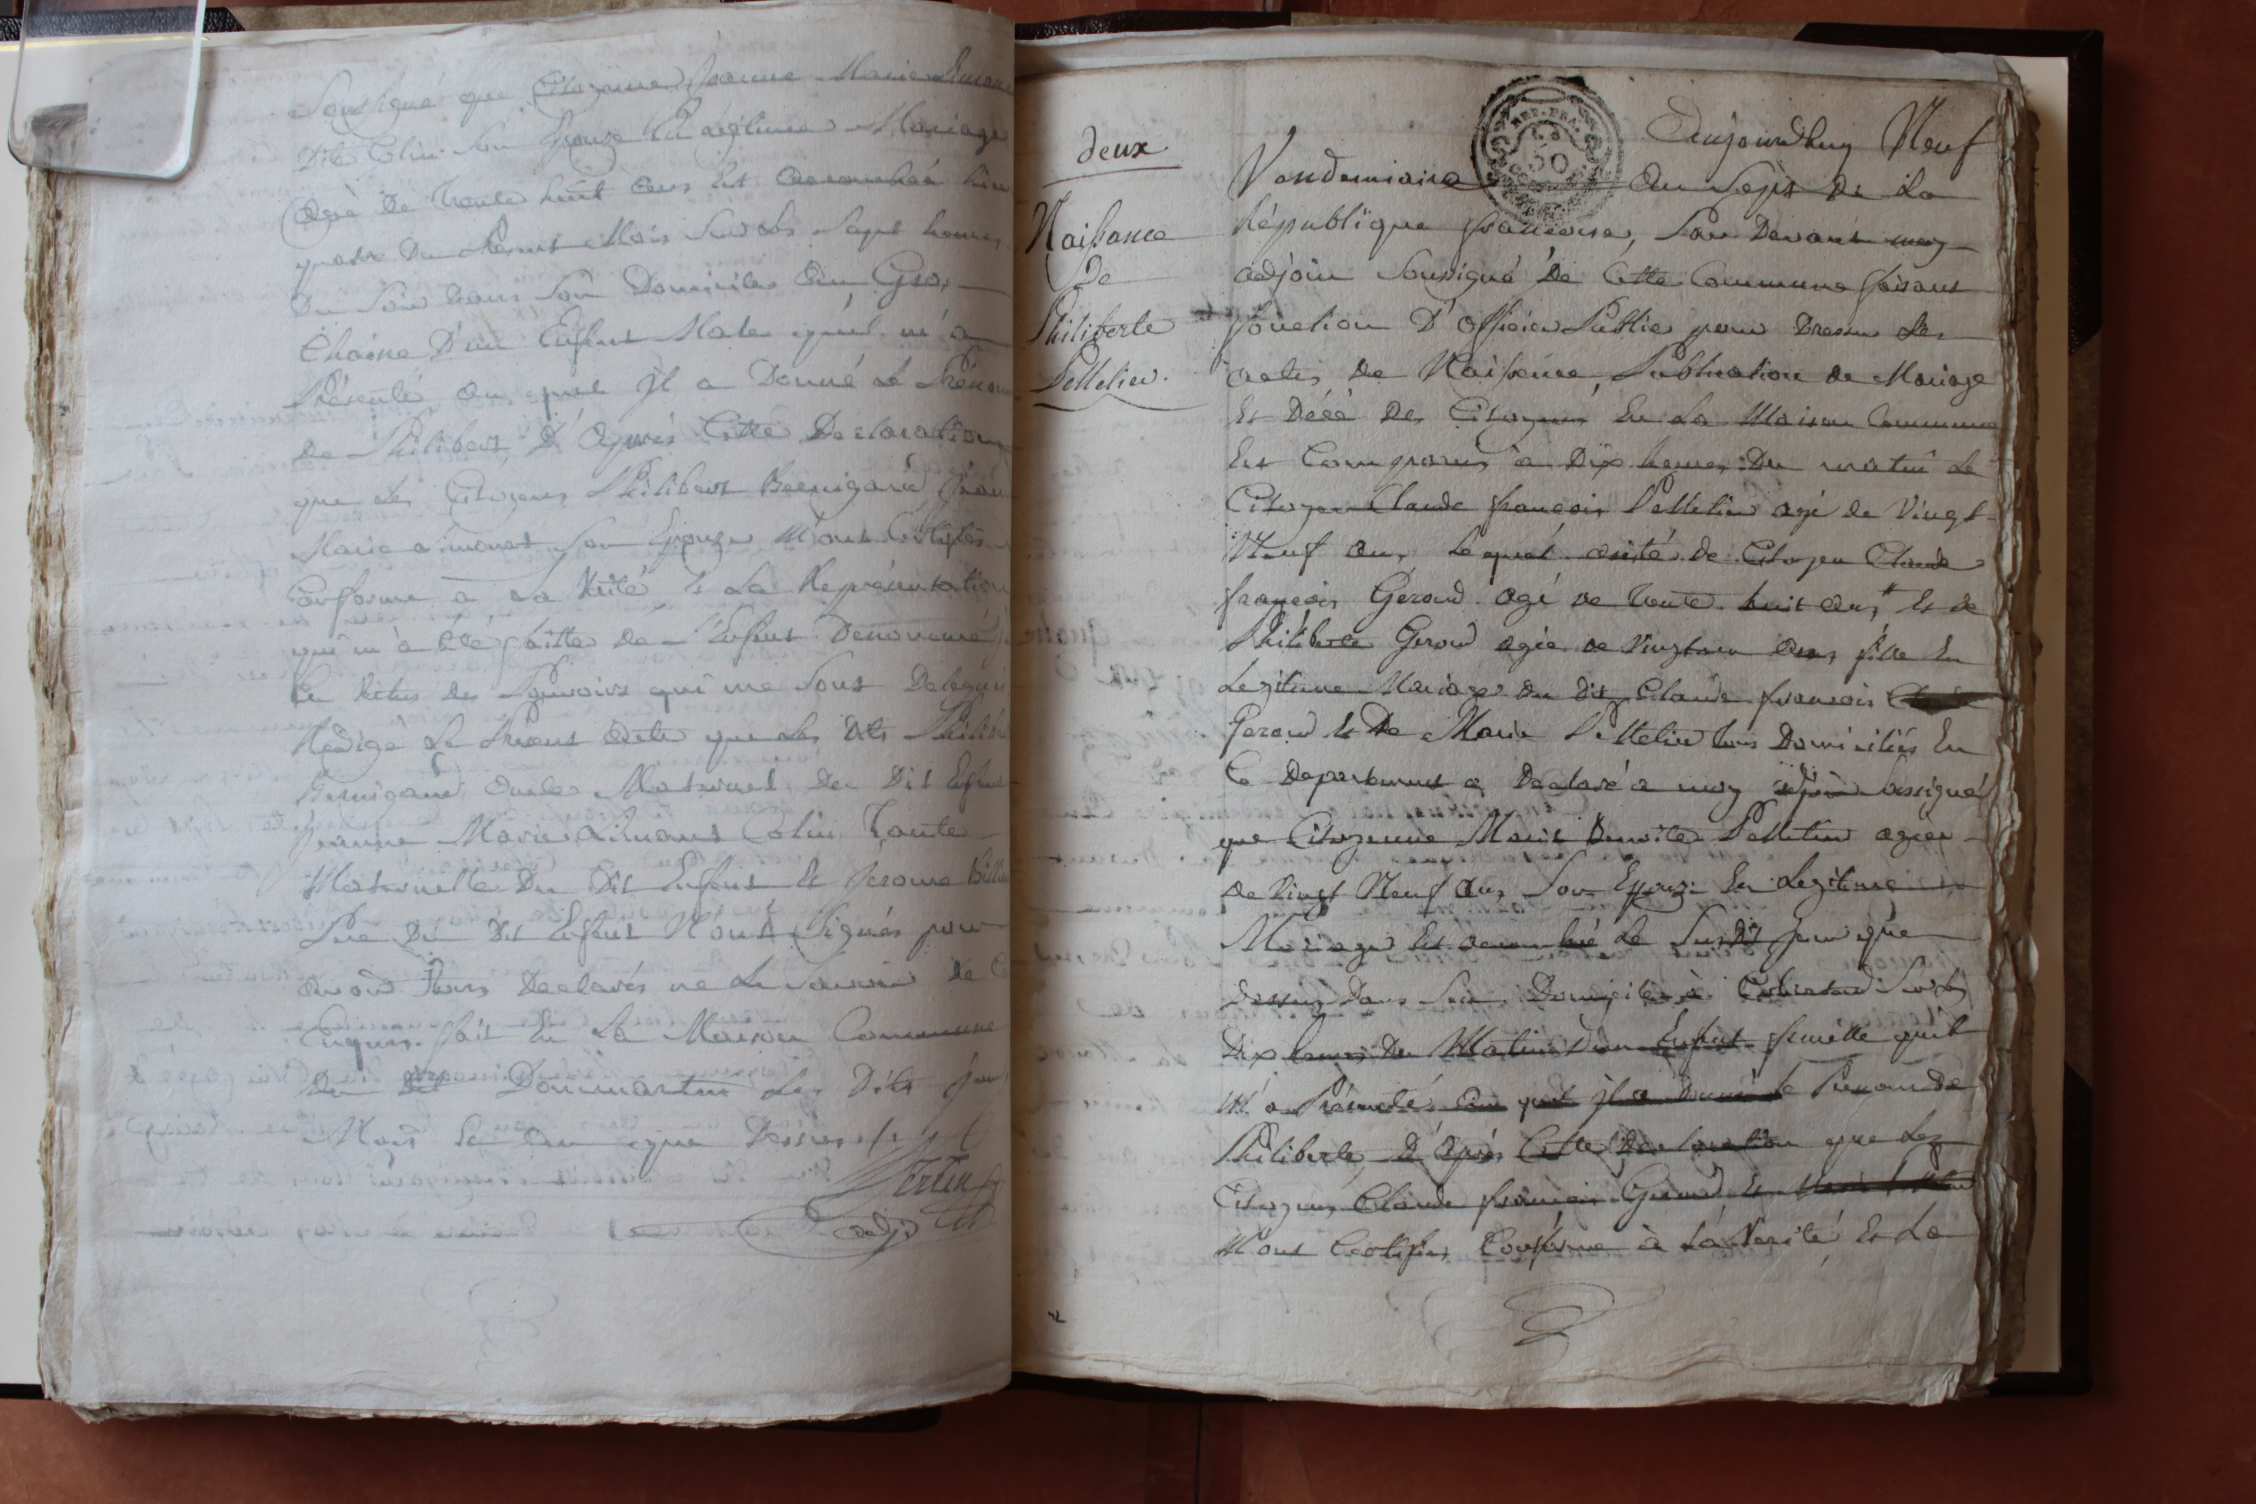 Soussigné que Citoyenne Jeanne Marie
Dite Colin Son Epouze En légitime Mariage
Agée De trente huit ans Est accouchée hier
quatre Du Present Mois Sur les Sept heures
Du Soir Dans Son Domicile Au Gros
Chaine D'un Enfant Male quil m'a
Présenté Au quel Il a Donné Le Prénom
De Philibert, D'Après Cette Declaration
que Les Citoyens Philibert
Marie Simonet Son Epouze M'ont Certifiés
Conforme à La Vérité Et La Représentation
qui m'a Eté faitte De L'Enfant Denommé
En Vertus Des Pouvoirs qui me Sont Delegués
Redigé Le Present Acte que Les dits Philibert
Oncle Maternel Du Dit Enfant
Jeanne Marie Colin Tante
Maternelle Du Dit Enfant Et Jerome
Pere Du Dit Enfant N'ont Signés pour
avoir Tous Declarés ne Le Savoir De Ce
Enquis. fait En La Maison Commune
Du dit Dommartin Les Dits Jour
Mois Et an que Dessus
adj
deux
Naissance
De
Philiberte
Pelletier.
Aujourdhuy Neuf
REP. FRA.
50
Vendemiaire An Sept De La
République françoise, Par Devant moy
adjoin Sousigné De Cette Commune faisant
fonction D'Officier Public pour Dresser Les
actes De Naissance, Publication De Mariage
Et Décé Des Citoyens En La Maison Commune
Est Comparus à Dix heures Du matin Le
Citoyen Claude françois Pelletier agé De Vingt
Neuf ans, Lequel assisté De Citoyen Claude
françois Geroud agé De trente huit ans, Et De
Philiberte Gerou agée De Vingt ans fille En
Legitime Mariage Du Dit Claude françois
Geroud Et De Marie Pelletier tous Domiciliés En
Ce Departement a Declaré à moy adjoin Sussigné
que Citoyenne Marie Benoite Pelletier agée
De Vingt Neuf ans, Son Epouze En Legitime
Mariage Est accouchée Le Susdit Jour que
Dessus Dans Son Domicile à Sur Les
Dix heures Du Matin D'un Enfant femelle quil
M'a Présenté Au quel Il a Donné Le Prenom De
Philiberte, D'Après Cette Declaration que Les
Citoyens Claude françois Geroud Et
M'ont Certifiés Conforme à La Vérité Et La